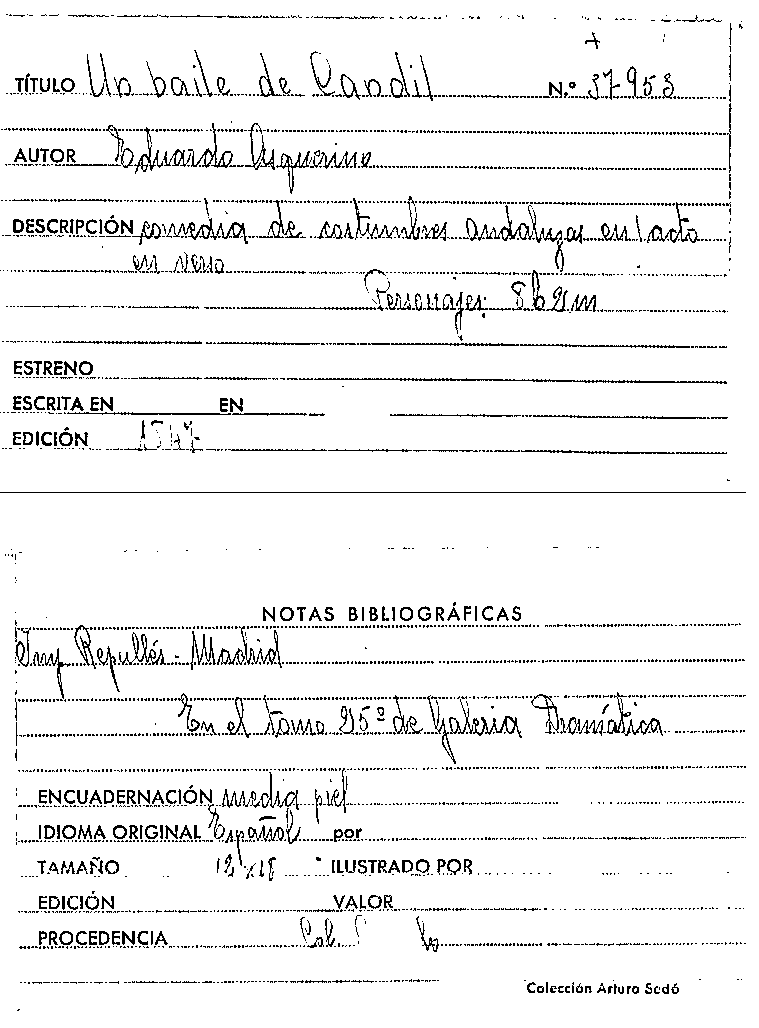 TÍTULO Un baile de Candil N.º 37953
AUTOR Eduardo Asquerino
DESCRIPCIÓN comedia de costumbres andaluzas en 1 acto
en verso
Personajes: 8h 2m
ESTRENO
ESCRITA EN EN
EDICIÓN
NOTAS BIBLIOGRÁFICAS
Imp Repullés - Madrid
En el tomo 25º de Galeria Dramática
ENCUADERNACIÓN media piel
IDIOMA ORIGINAL Español por
TAMAÑO 12x18 ILUSTRADO POR
EDICIÓN VALOR
PROCEDENCIA Col.
Colección Arturo Sedó